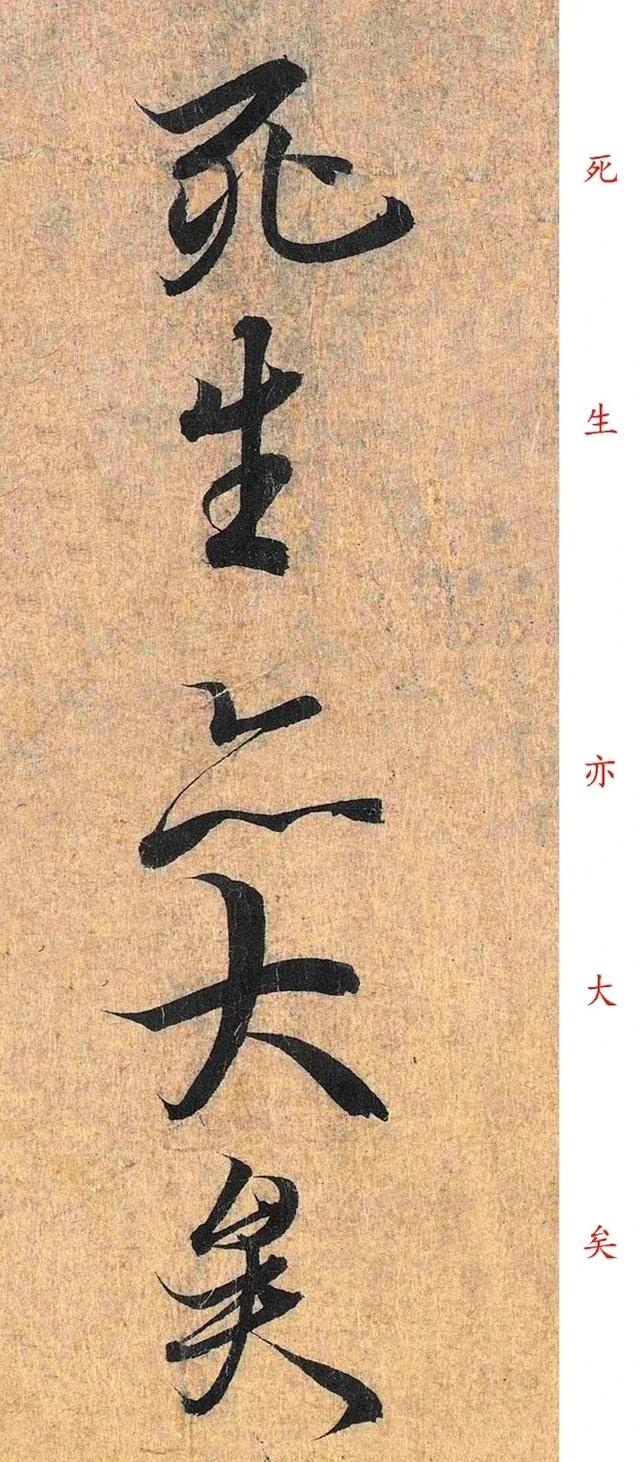 死生亦大矣
死
生
亦
大
矣